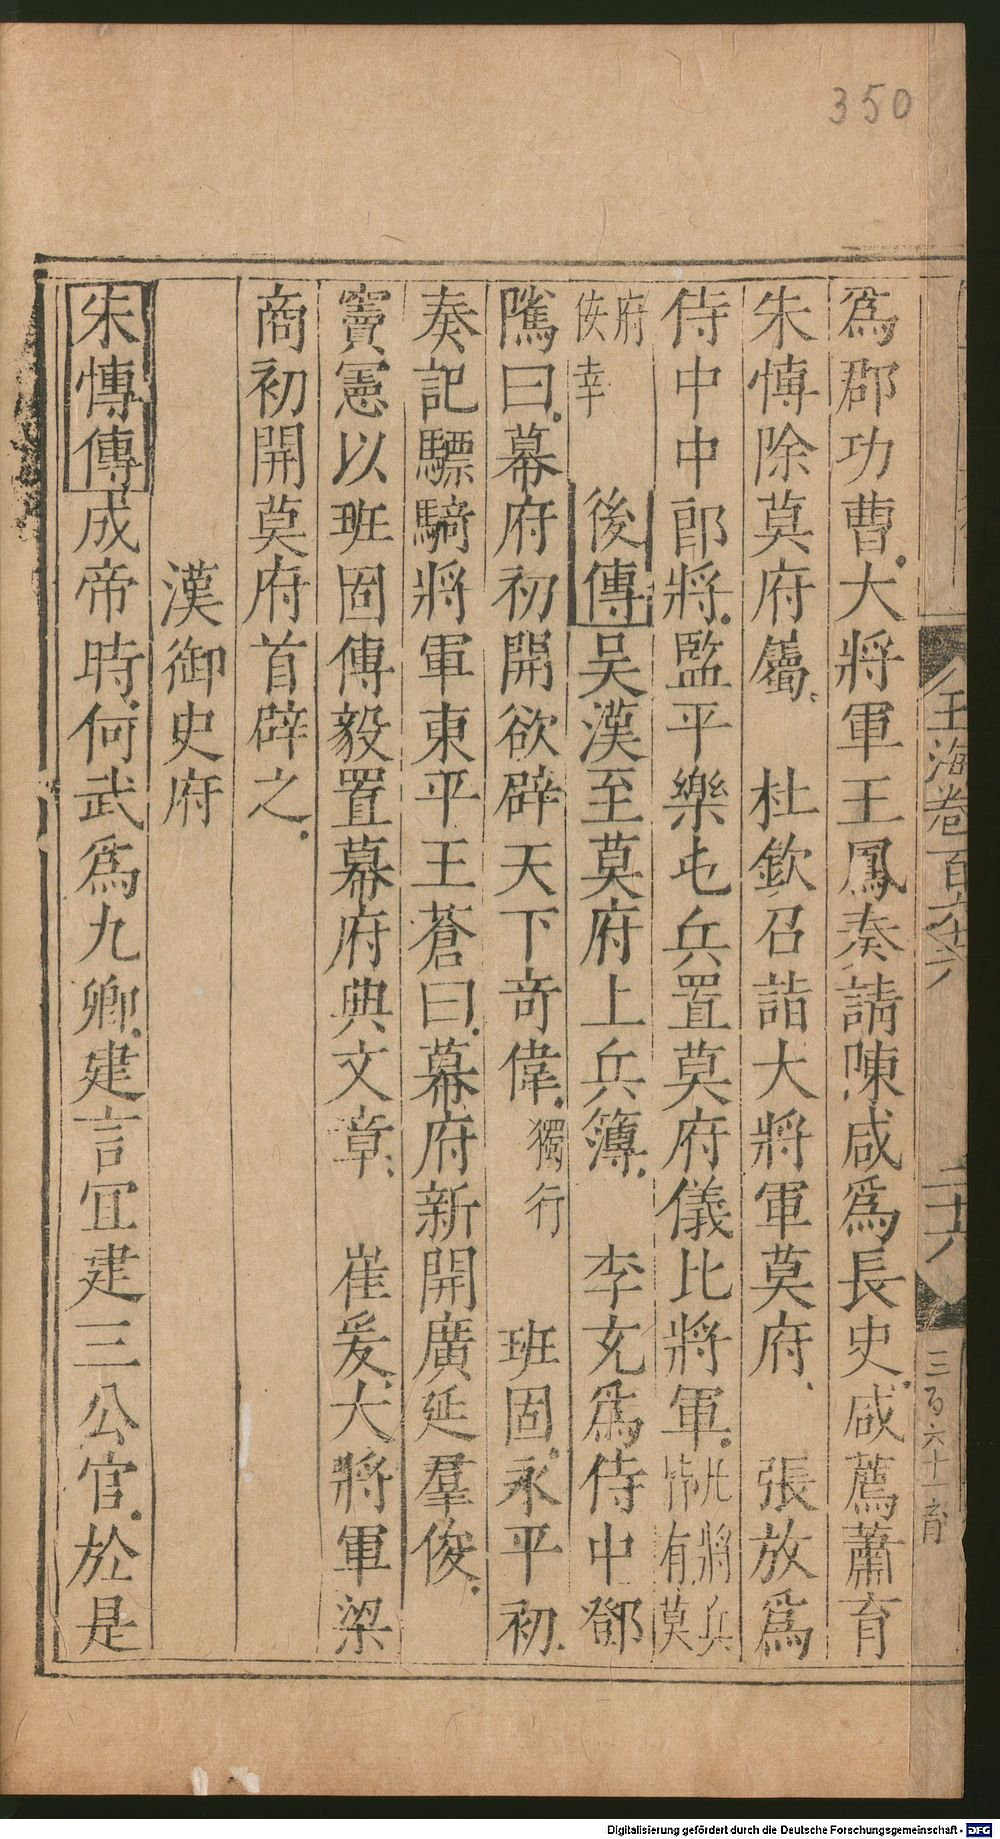 350
玉海卷百六十六
二十六
三百六十一育
爲郡功曹大將軍王鳳奏請陳咸爲長史咸薦蕭育
朱慱除莫府屬　杜欽召詣大將軍莫府　張放爲
侍中中郎將監平樂屯兵置莫府儀比將軍凡將兵皆有莫
府佞幸　後傳吴漢至莫府上兵簿　李充爲侍中鄧
隲曰幕府初開欲辟天下竒偉獨行　班固永平初
奏記驃騎將軍東平王蒼曰幕府新開廣延羣俊
竇憲以班固傅毅置幕府典文章　崔爰大將軍梁
商初開莫府首辟之
漢御史府
朱慱傳成帝時何武爲九卿建言宜建三公官於是
Digitalisierung gefördert durch die Deutsche Forschungsgemeinschaft - DFG